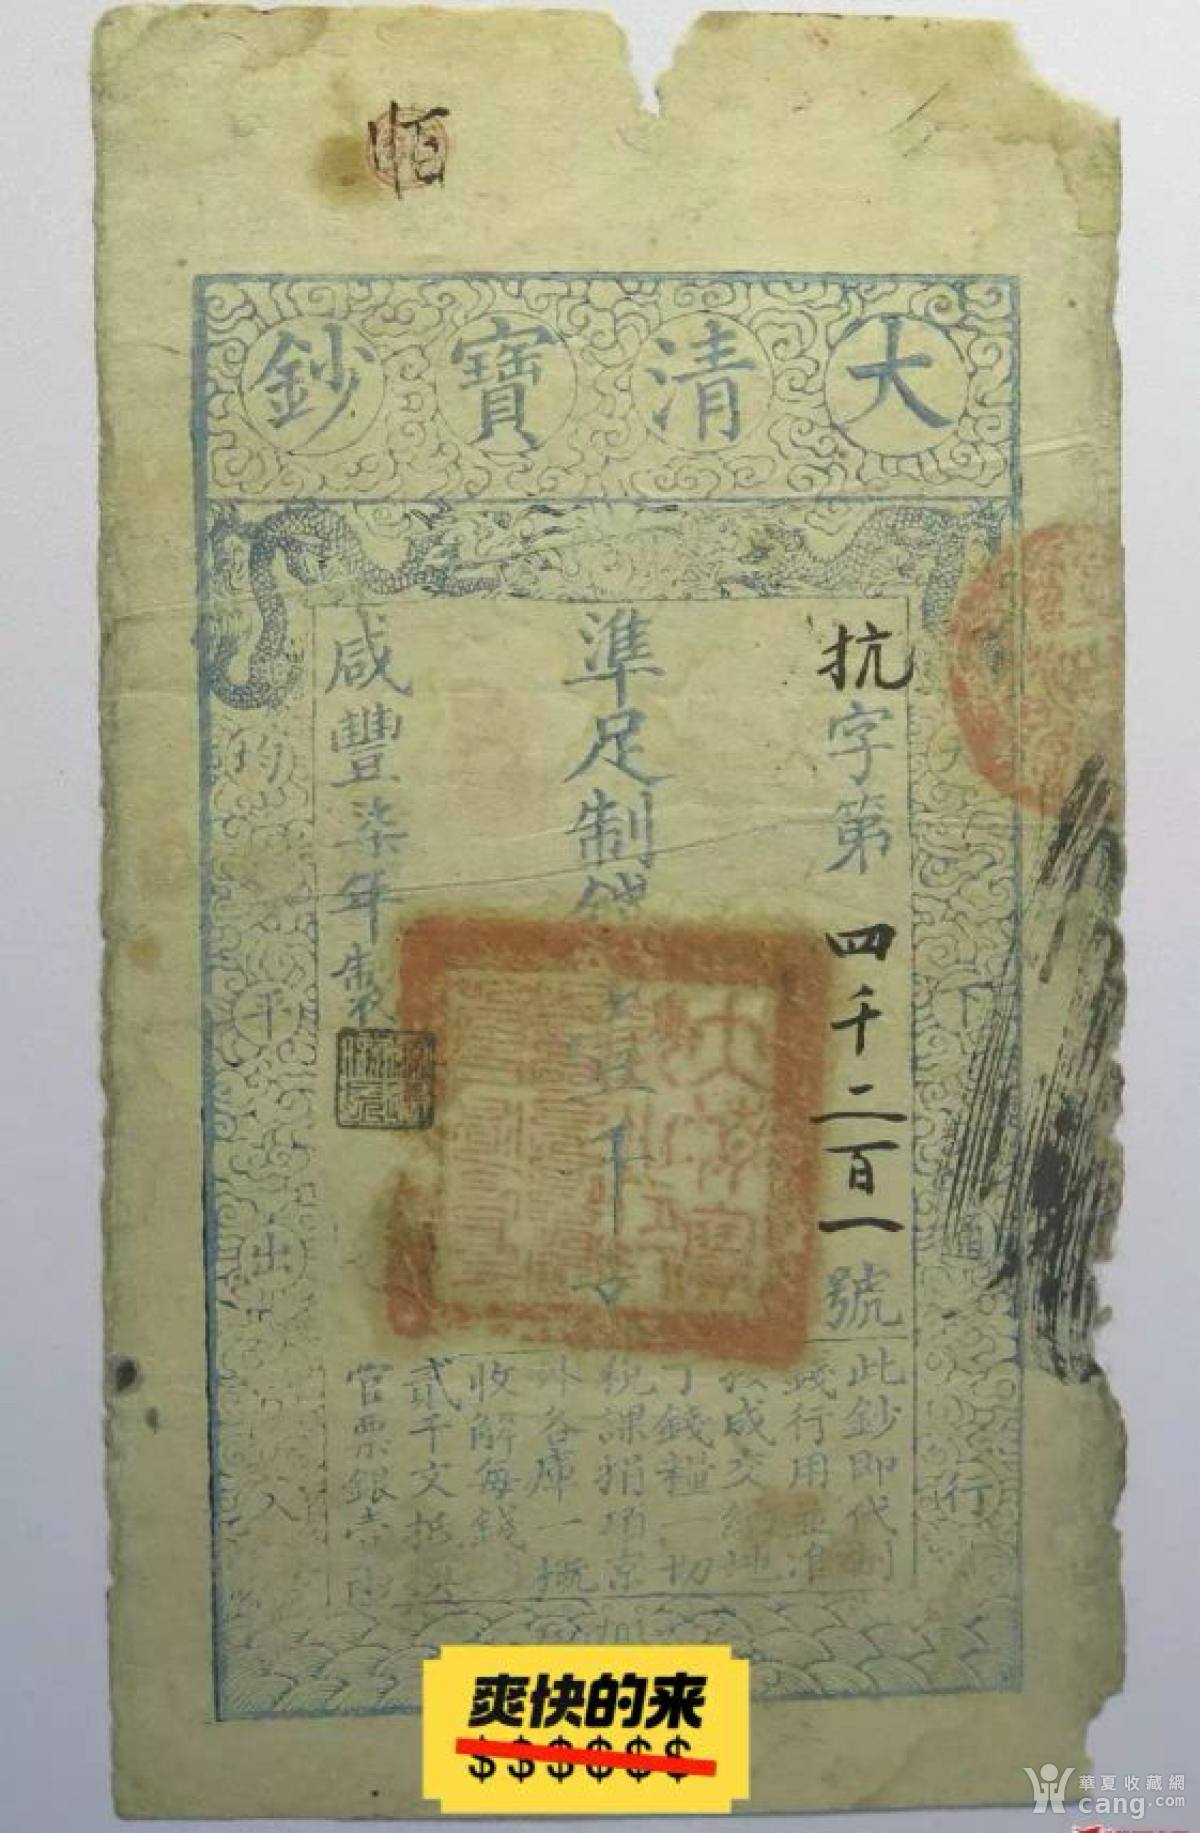 恒
大清寶鈔
抗字第四千二百一號
準足制錢壹千文
咸豐柒年製
天下通行
均平出入
此鈔即代制
錢行用並准
按成交納地
丁錢糧一切
稅課捐項京
外各庫一概
收解每錢
貳千文抵換
官票銀壹兩
爽快的来
$$$$$$
華夏收藏網
cang.com